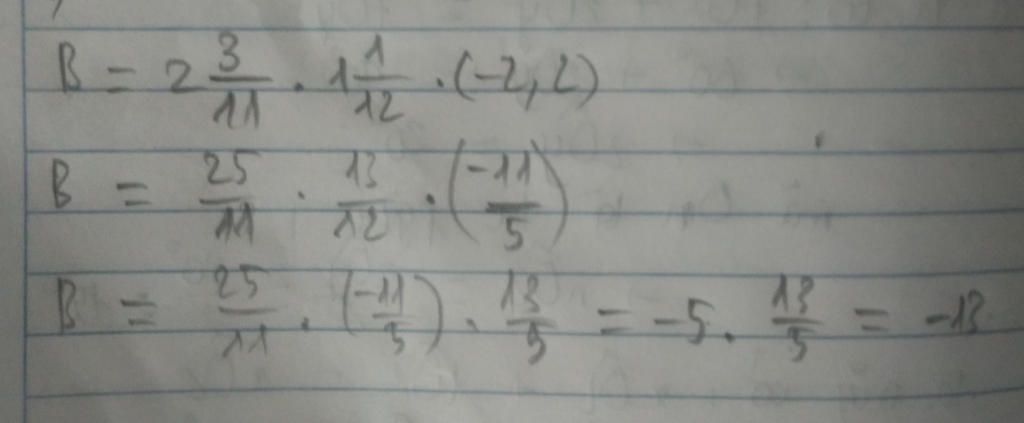 B = 2 3/11 . 1 1/12 . (-2,2)
B = 25/11 . 13/12 . (-11/5)
B = 25/11 . (-11/5) . 13/5 = -5 . 13/5 = -13